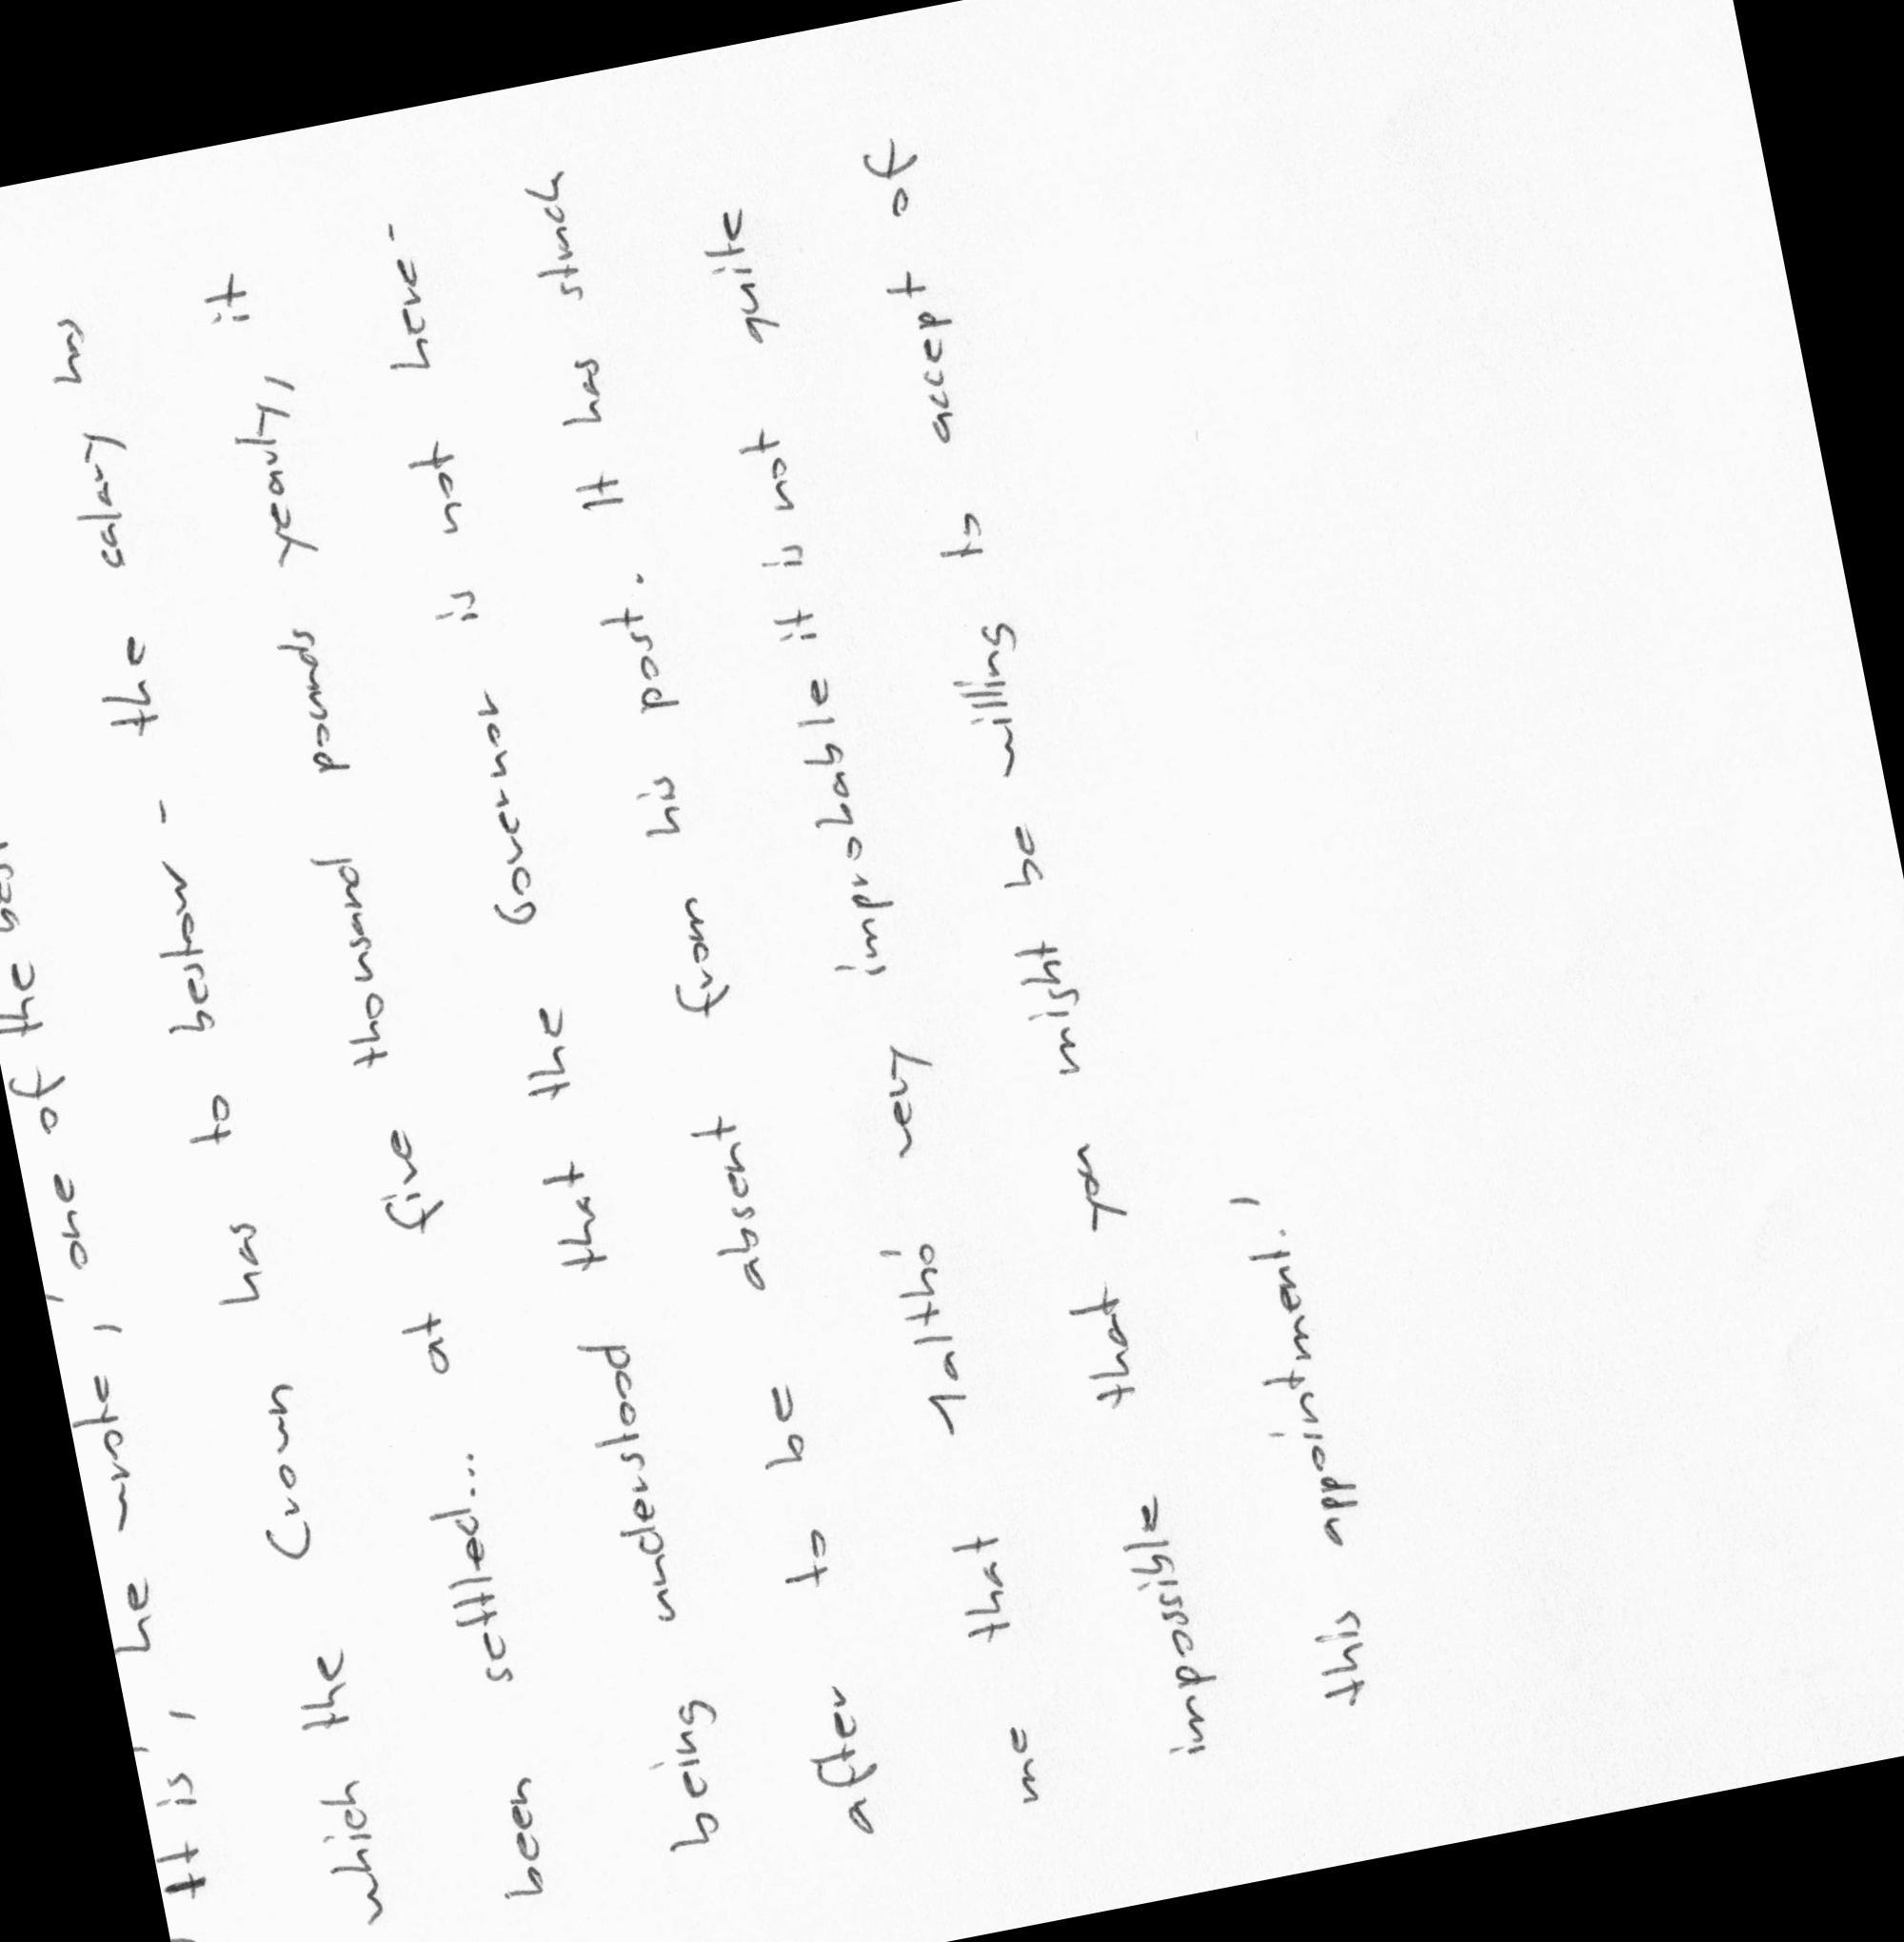 'It is,' he wrote, 'one of the
which the Crown has to bestow - the salary has
been settled... at five thousand pounds yearly, it
being understood that the Governor is not here-
after to be absent from his post. It has struck
me that 'altho' very improbable it is not quite
impossible that you might be willing to accept of
this appointment.'